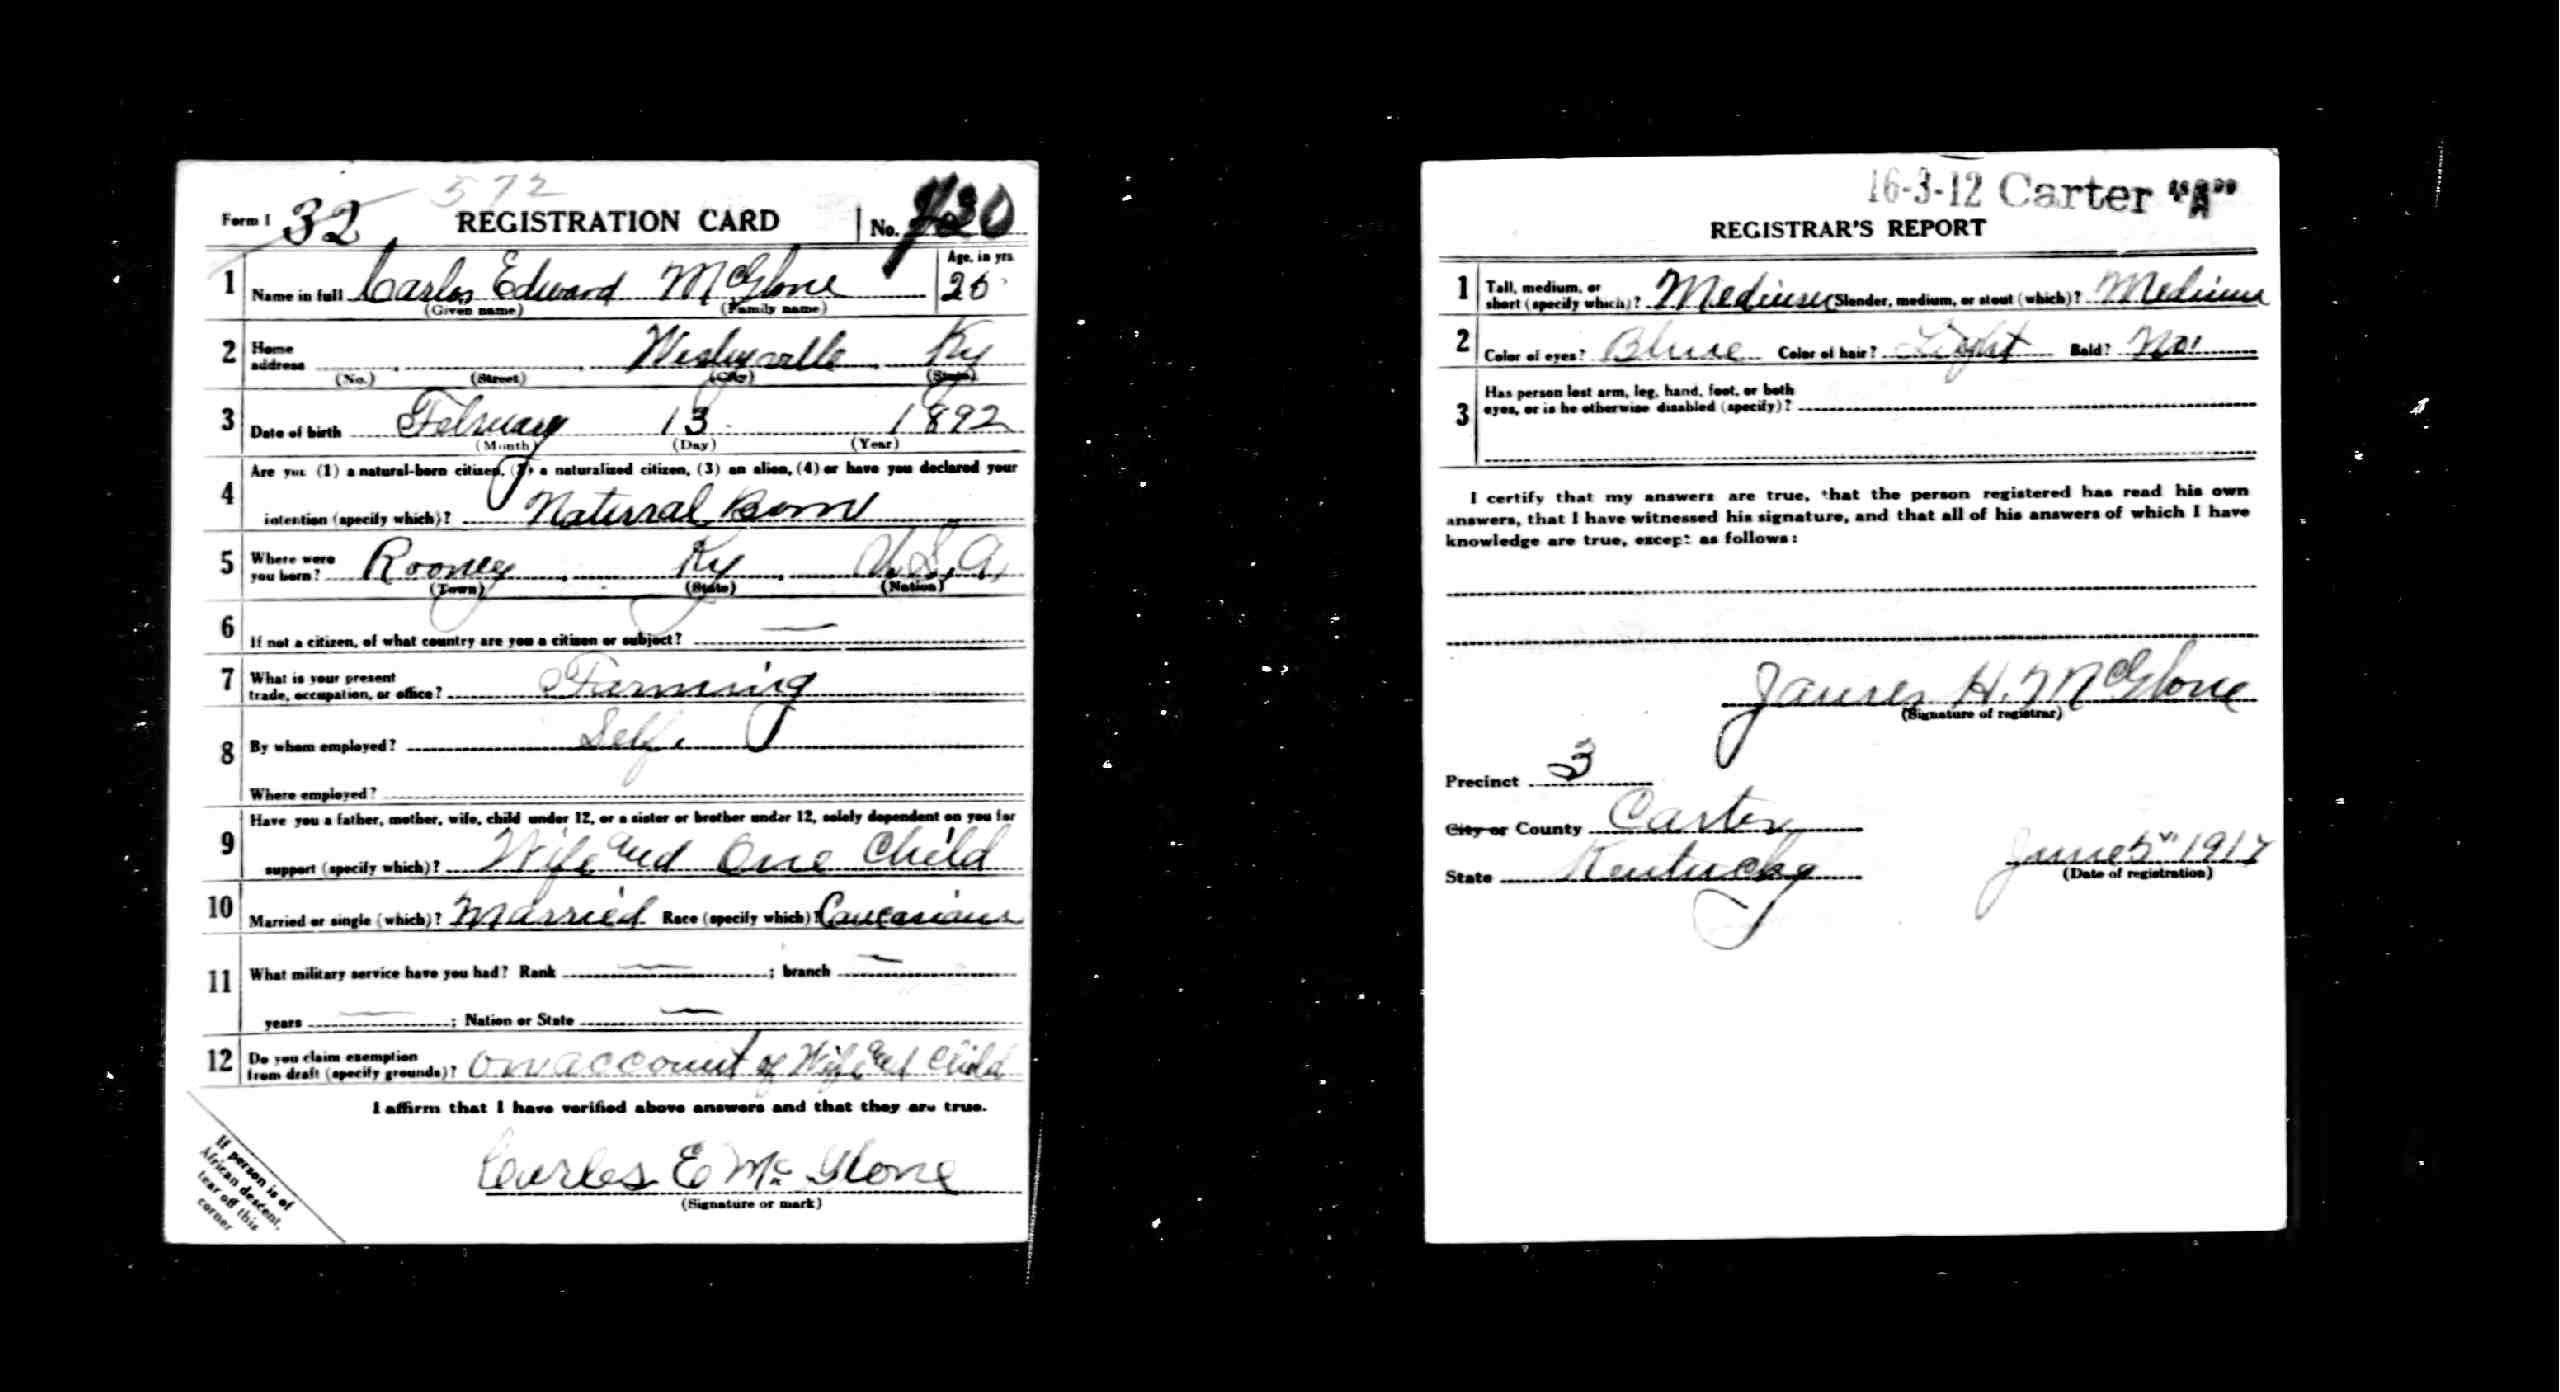 572
Form 1 32 REGISTRATION CARD No.
Age, in yrs.
1 Name in full Carlos Edward McGlone 25
(Given name) (Family name)
2 Home address Wesleyville Ky
(No.) (Street) (City) (State)
3 Date of birth February 13 1892
(Month) (Day) (Year)
4 Are you (1) a natural-born citizen, (2) a naturalized citizen, (3) an alien, (4) or have you declared your
intention (specify which)? Natural Born
5 Where were you born? Rooney Ky U.S.A.
(Town) (State) (Nation)
6 If not a citizen, of what country are you a citizen or subject? —
7 What is your present
trade, occupation, or office? Farming
8 By whom employed? Self.
Where employed?
9 Have you a father, mother, wife, child under 12, or a sister or brother under 12, solely dependent on you for
support (specify which)? Wife and One Child
10 Married or single (which)? Married Race (specify which)? Caucasian
11 What military service have you had? Rank — ; branch —
years — ; Nation or State —
12 Do you claim exemption
from draft (specify grounds)? On account of Wife and Child
I affirm that I have verified above answers and that they are true.
Carles E McGlone
(Signature or mark)
If person is of
African descent,
tear off this
corner
16-3-12 Carter "A"
REGISTRAR'S REPORT
1 Tall, medium, or
short (specify which)? Medium Slender, medium, or stout (which)? Medium
2 Color of eyes? Blue Color of hair? Light Bald? No
3 Has person lost arm, leg, hand, foot, or both
eyes, or is he otherwise disabled (specify)?
I certify that my answers are true, that the person registered has read his own
answers, that I have witnessed his signature, and that all of his answers of which I have
knowledge are true, except as follows:
James H. McGlone
(Signature of registrar)
Precinct 3
City or County Carter
State Kentucky June 5" 1917
(Date of registration)